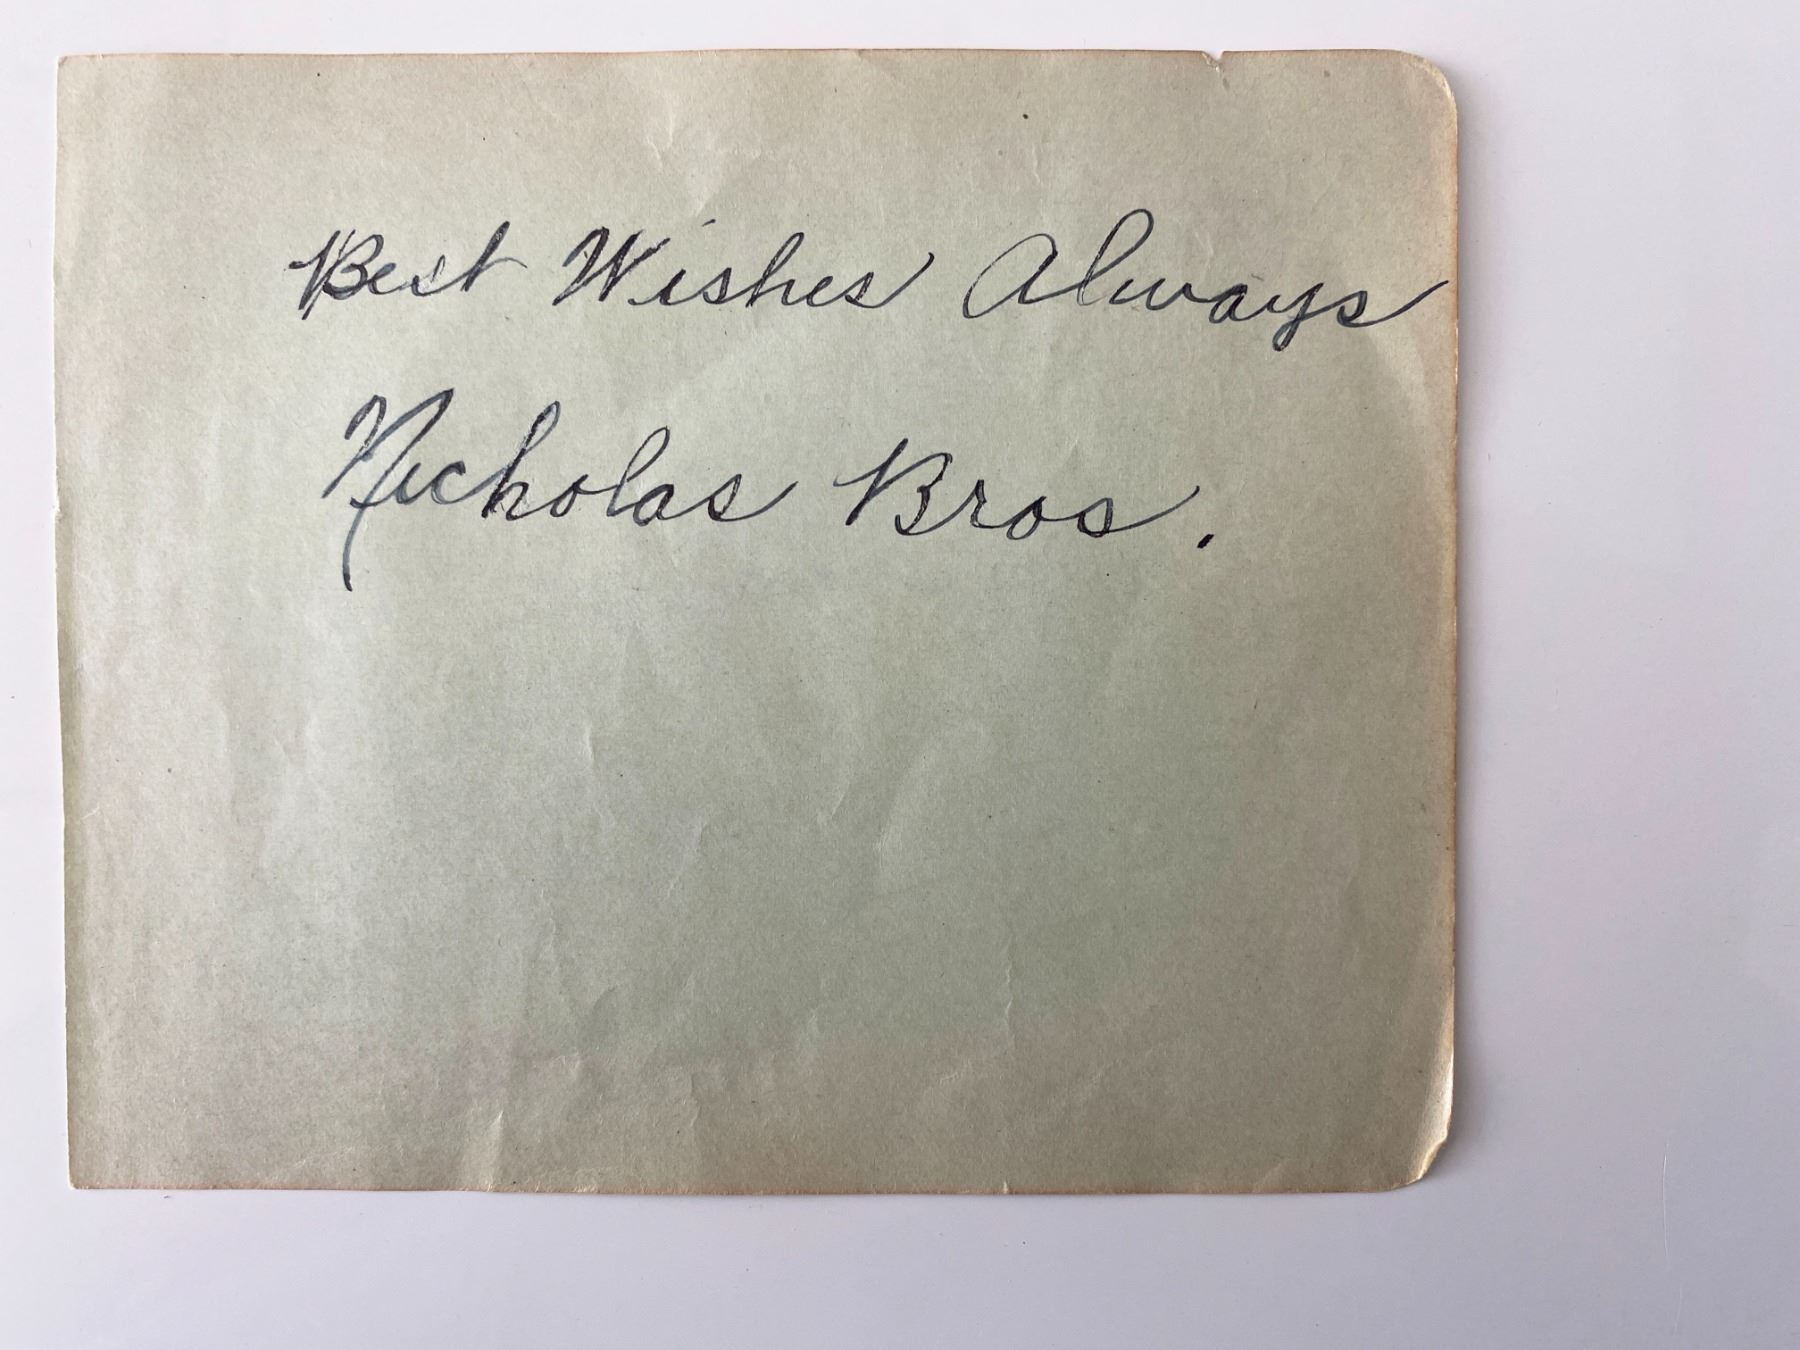 Best Wishes Always
Nicholas Bros.